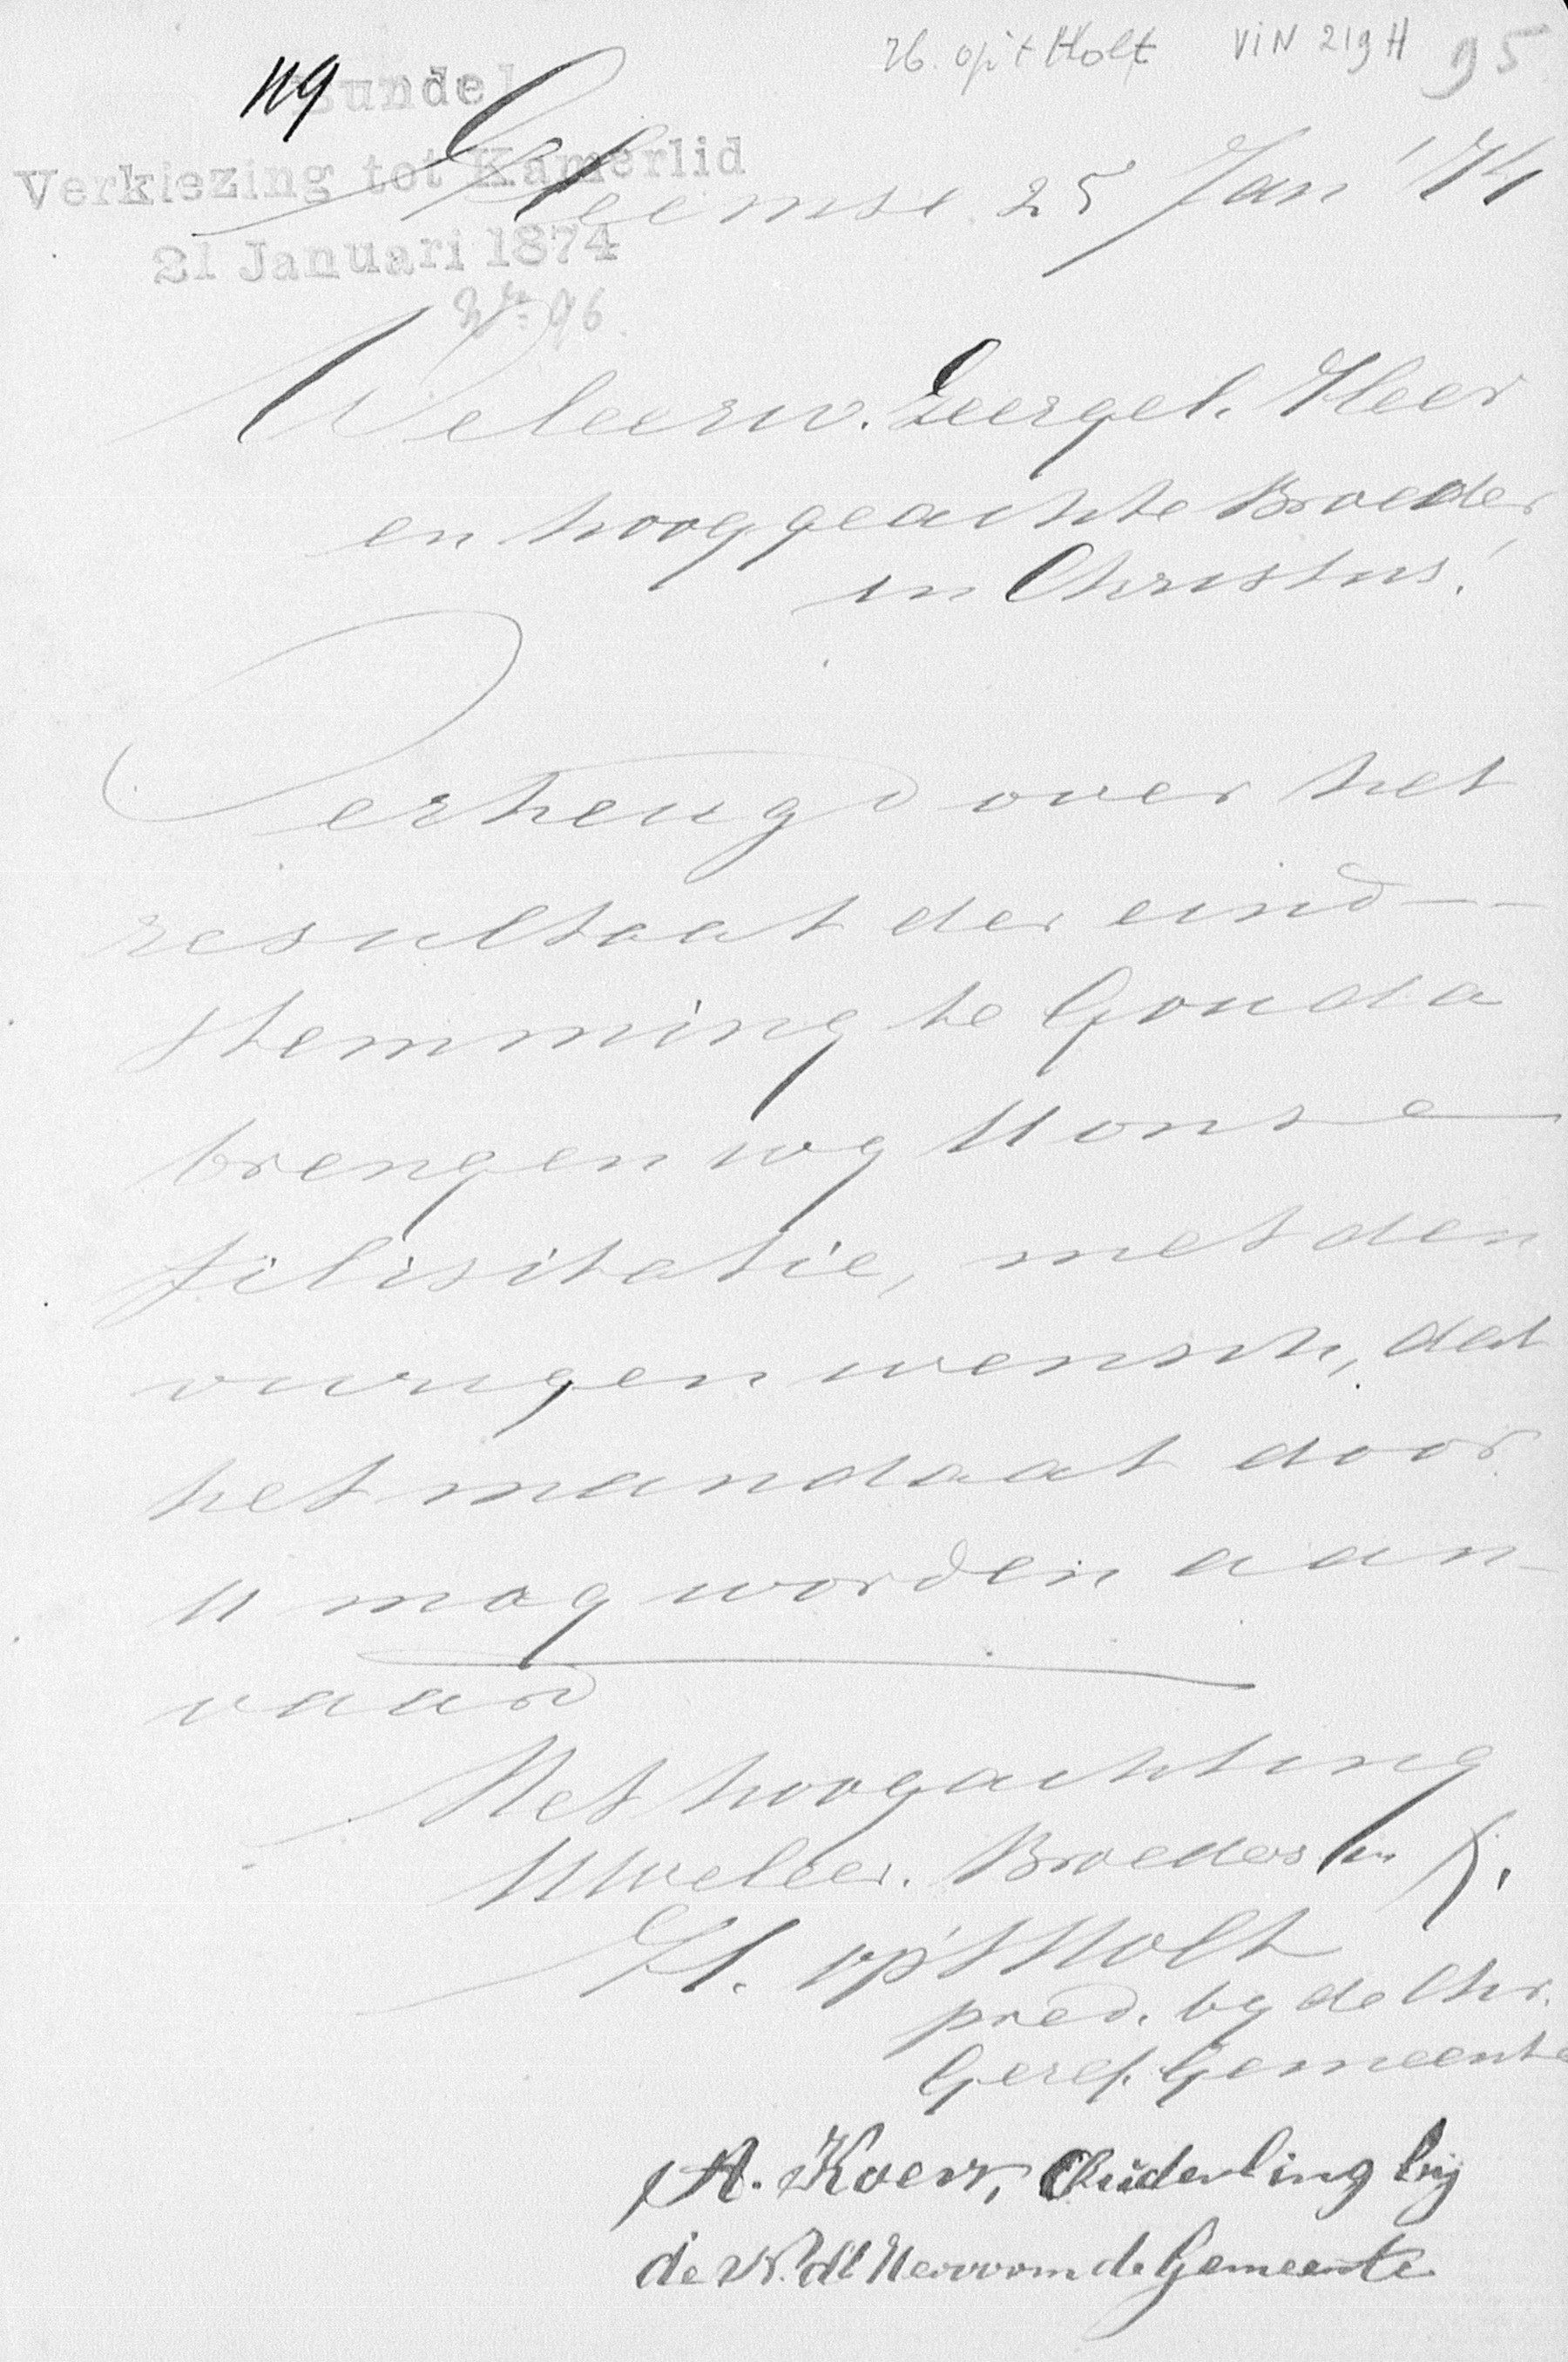 H. op 't Holt VIN 219 H 95
119
Bundel
Verkiezing tot Kamerlid
21 Januari 1874
No. 96.
Heemse 25 Jan '74
Weleerw. Zeergel. Heer
en hooggeachte Broeder
in Christus!
Verheugd over het
resultaat der eind-
stemming te Gouda
brengen wy U onze
filisitatie, met den
vurigen wensch, dat
het mandaat door
U mag worden aan-
vaard
Met hoogachting
UWeleer. Broeders in X.
H. op 't Holt
pred. by de Chr.
Geref. Gemeente
A. Koers, Ouderling bij
de Ned. Hervormde Gemeente